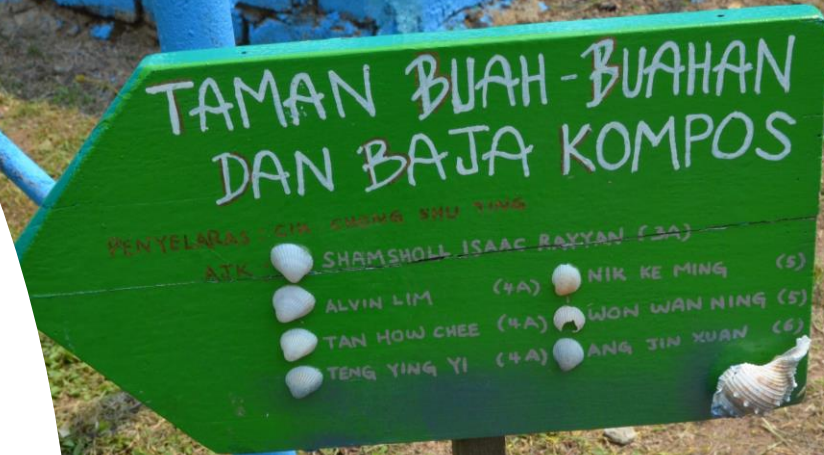 TAMAN BUAH-BUAHAN
DAN BAJA KOMPOS
PENYELARAS : CIK CHONG SHU YING
AJK
SHAMSHOLL ISAAC RAYYAN (3A)
ALVIN LIM (4A)
TAN HOW CHEE (4A)
TENG YING YI (4A)
NIK KE MING (5)
WON WAN NING (5)
ANG JIN XUAN (6)